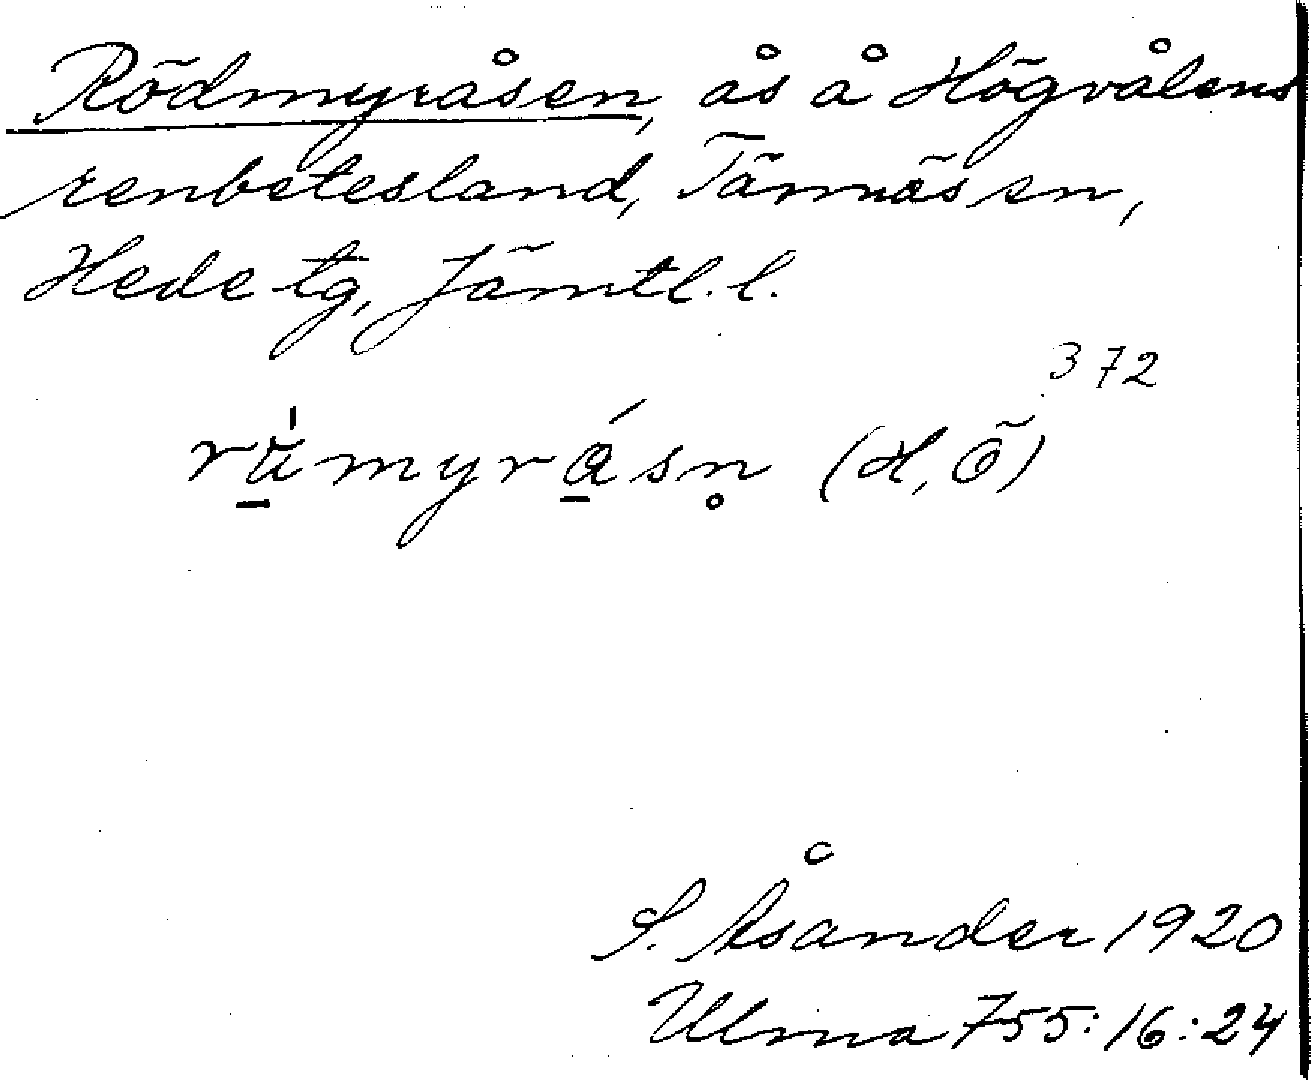 Rödmyråsen, ås å Högvålens
renbetesland, Tännäs sn,
Hede tg, Jämtl. l.
372
myråsn̥ (H, Ö)
S. Åsander 1920
Ulma 755:16:24